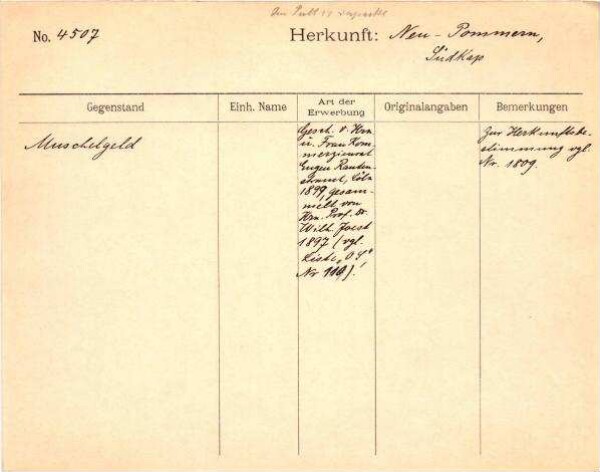 No. 4507
Herkunft: Neu-Pommern,
Südkap
Gegenstand
Einh. Name
Art der
Erwerbung
Originalangaben
Bemerkungen
Muschelgeld
Gesch. v. Hrn
u. Frau Kom-
merzienrat
Eugen Rauten-
strauch, Cöln
1899, gesam-
melt von
Hrn. Prof. Dr.
Wilh. Joest
1897 (vgl.
Kiste „O S",
Nr 110).
Zur Herkunftsbe-
stimmung vgl.
Nr. 1809.